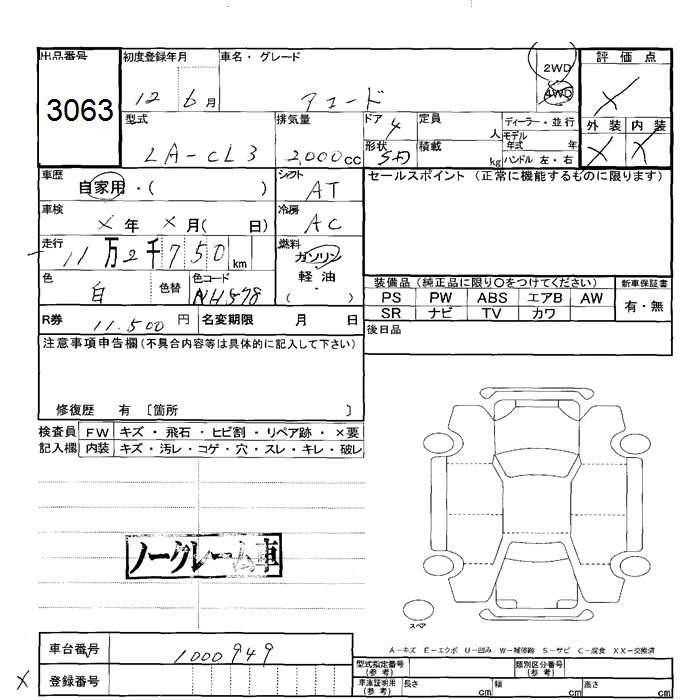 出品番号
3063
初度登録年月
12 6月
車名・グレード
アコード
2WD
4WD
評価点
X
外装 内装
X X
型式
LA-CL3
排気量
2,000cc
ドア 4
形状 SD
定員 人
積載 kg
ディーラー・並行
モデル年式 年
ハンドル 左・右
車歴
自家用・( )
シフト
AT
車検
X年 X月( 日)
冷房
AC
走行
11万2千750km
燃料
ガソリン・
軽油・
( )
色
白
色替
色コード
NH578
R券 11,500円
名変期限 月 日
セールスポイント(正常に機能するものに限ります)
装備品(純正品に限り○をつけてください)
PS PW ABS エアB AW
SR ナビ TV カワ
新車保証書
有・無
後日品
注意事項申告欄(不具合内容等は具体的に記入して下さい)
修復歴 有〔箇所 〕
検査員記入欄
FW キズ・飛石・ヒビ割・リペア跡・×要
内装 キズ・汚レ・コゲ・穴・スレ・キレ・破レ
ノークレーム車
スペア
A-キズ E-エクボ U-凹み W-補修跡 S-サビ C-腐食 XX-交換済
車台番号 1000949
X 登録番号
型式指定番号(参考)
類別区分番号(参考)
車庫証明用(参考) 長さ cm 幅 cm 高さ cm